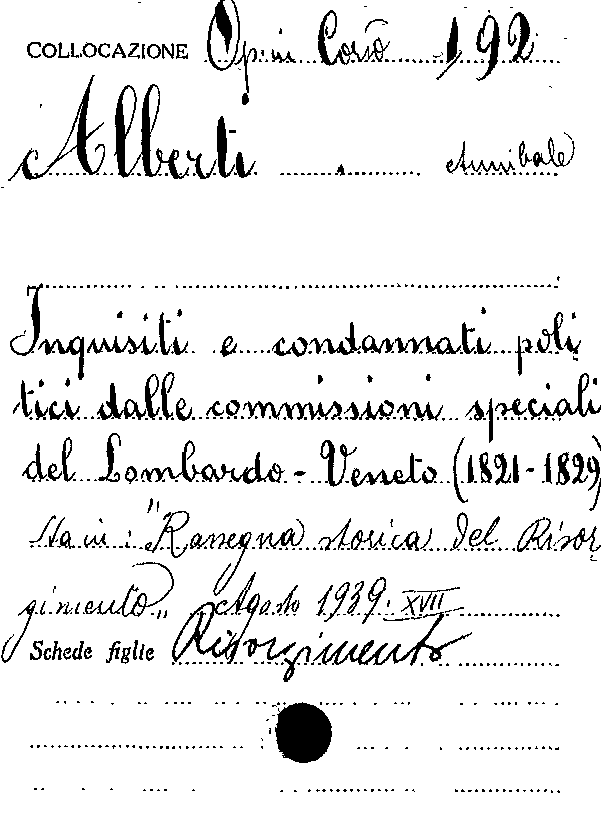 COLLOCAZIONE Opin Corso 192
Alberti Annibale
Inquisiti e condannati poli
tici dalle commissioni speciali
del Lombardo-Veneto (1821-1829)
Sta in: "Rassegna storica del Risor
gimento„ Agosto 1939. XVII
Schede figlie Risorgimento